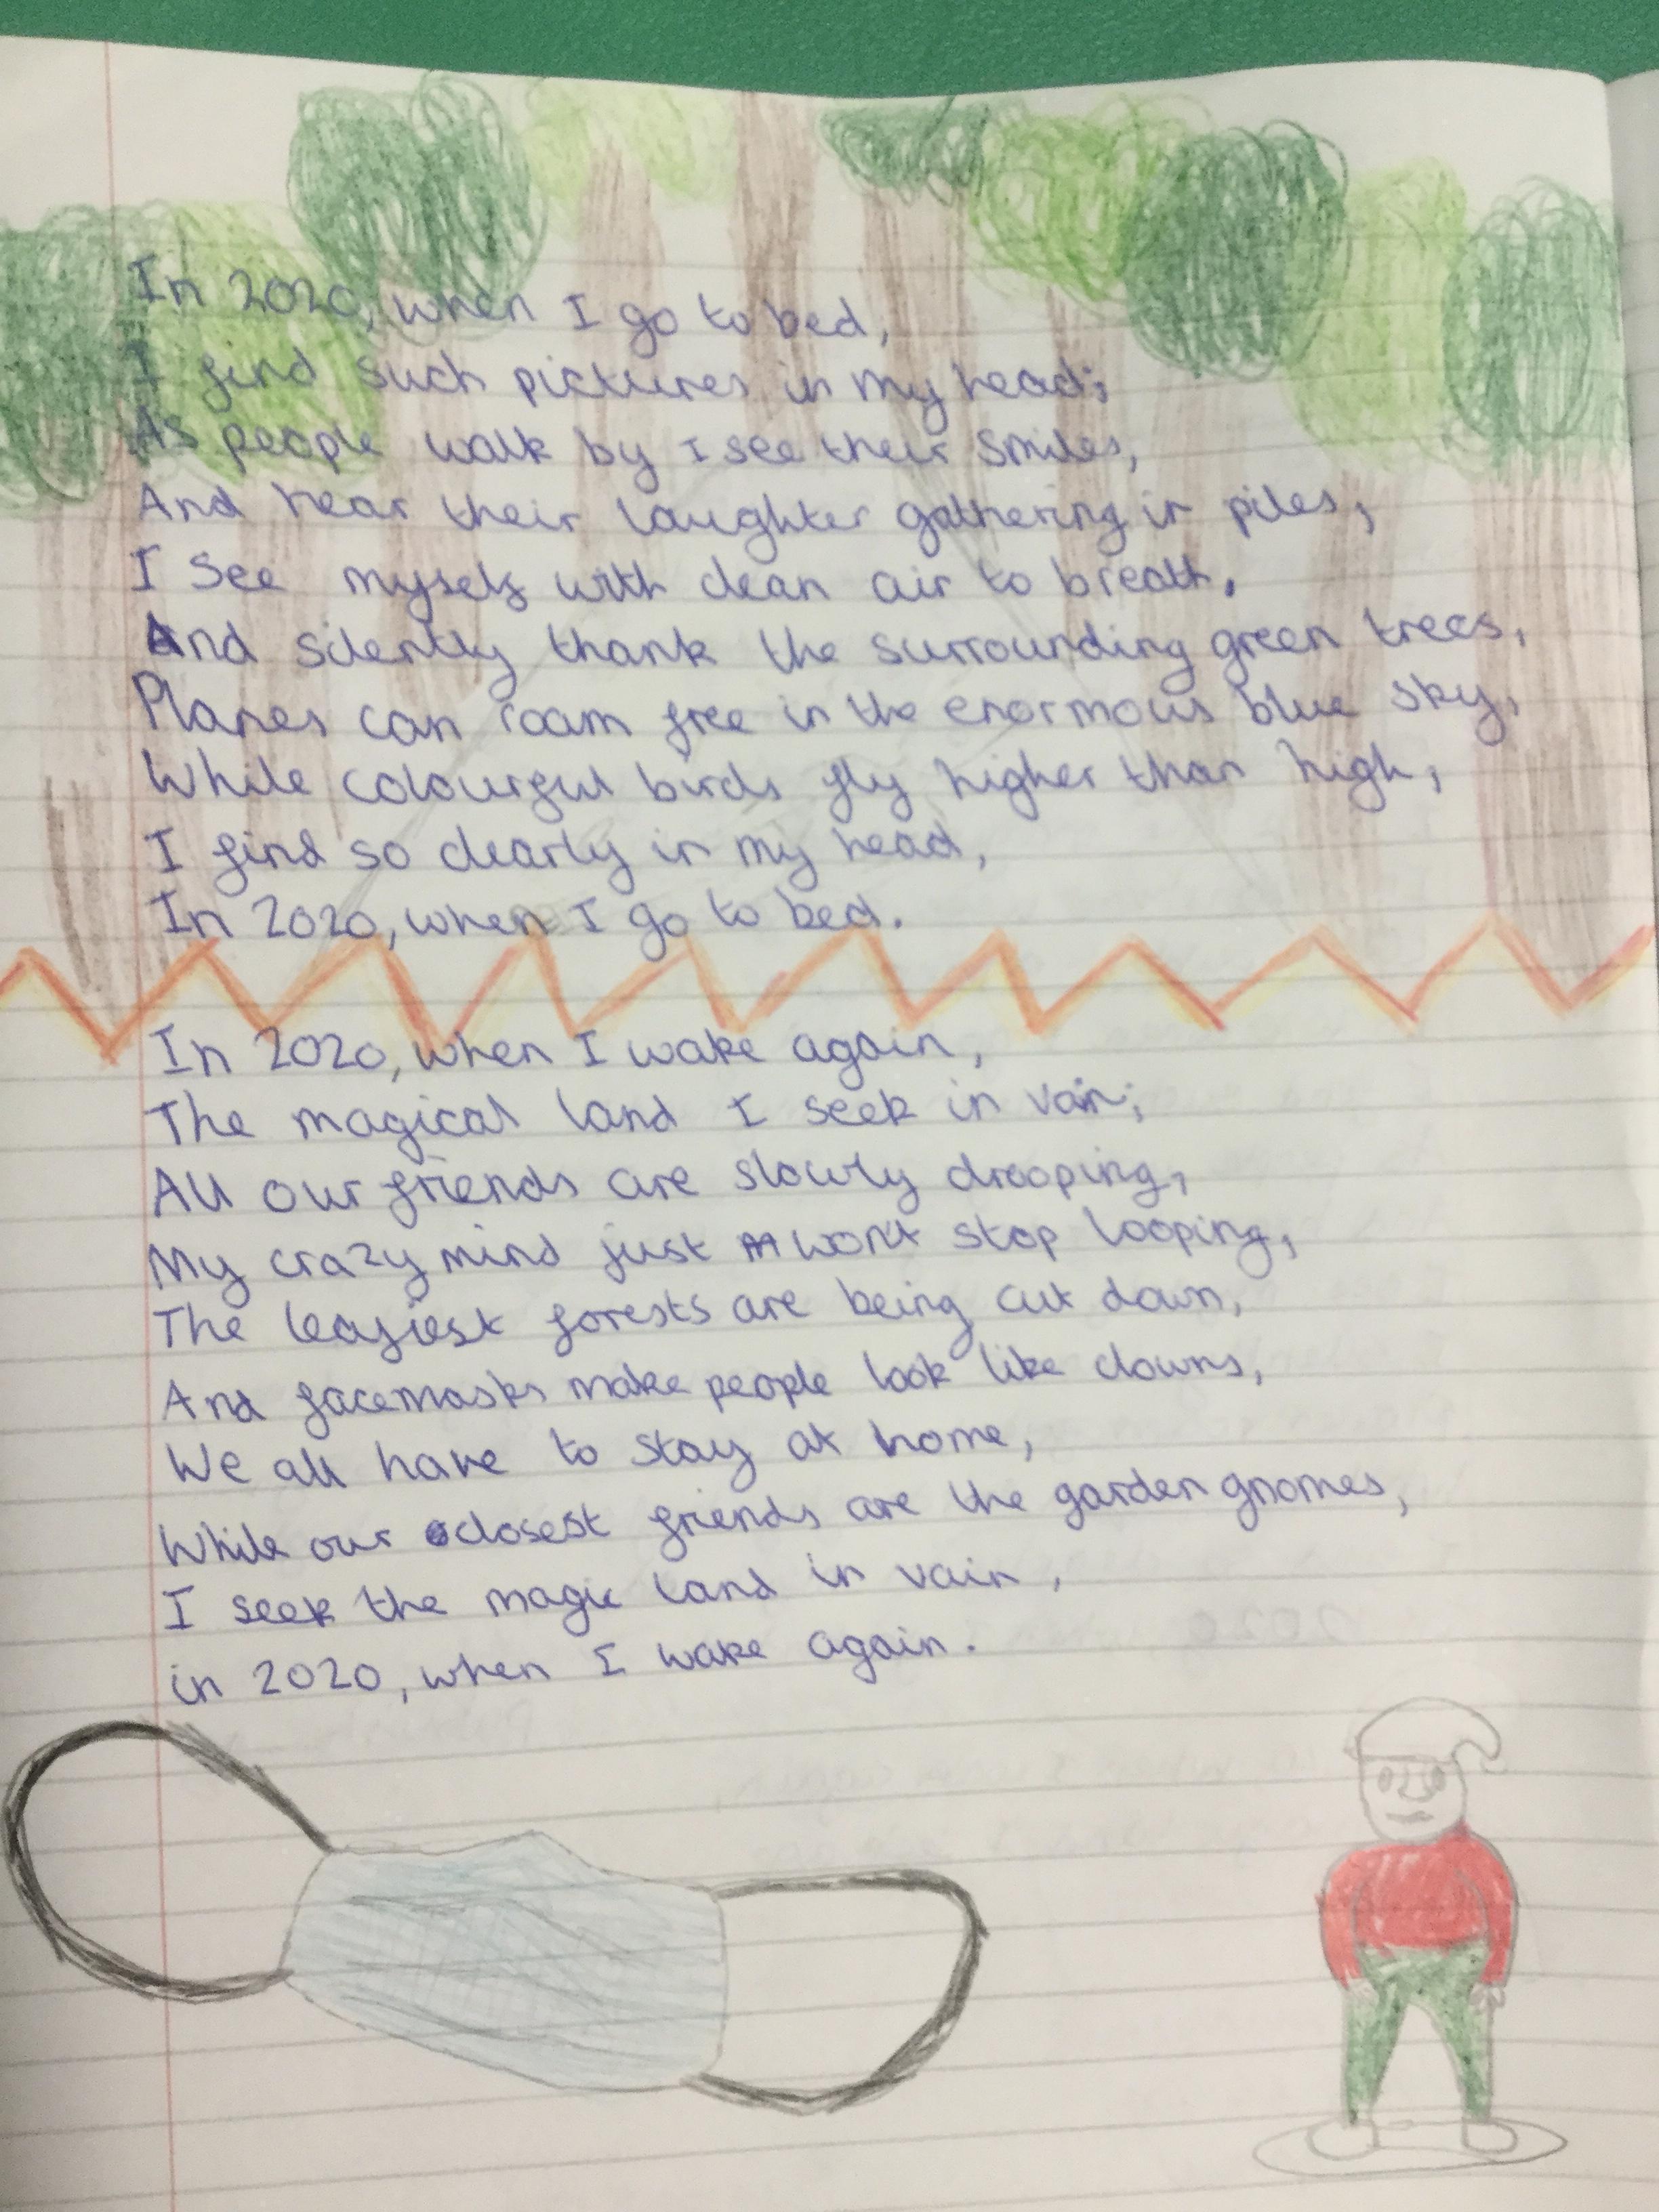 In 2020, when I go to bed,
I find such pictures in my head;
As people walk by I see their smiles,
And hear their laughter gathering in piles,
I see myself with clean air to breath.
And silently thank the surrounding green trees,
Planes can roam free in the enormous blue sky,
While colourful birds fly higher than high,
I find so clearly in my head,
In 2020, when I go to bed.
In 2020, when I wake again,
The magical land I seek in vain;
All our friends are slowly drooping,
My crazy mind just won't stop looping,
The leafiest forests are being cut down,
And facemasks make people look like clowns,
We all have to stay at home,
While our closest friends are the garden gnomes,
I seek the magic land in vain,
in 2020, when I wake again.